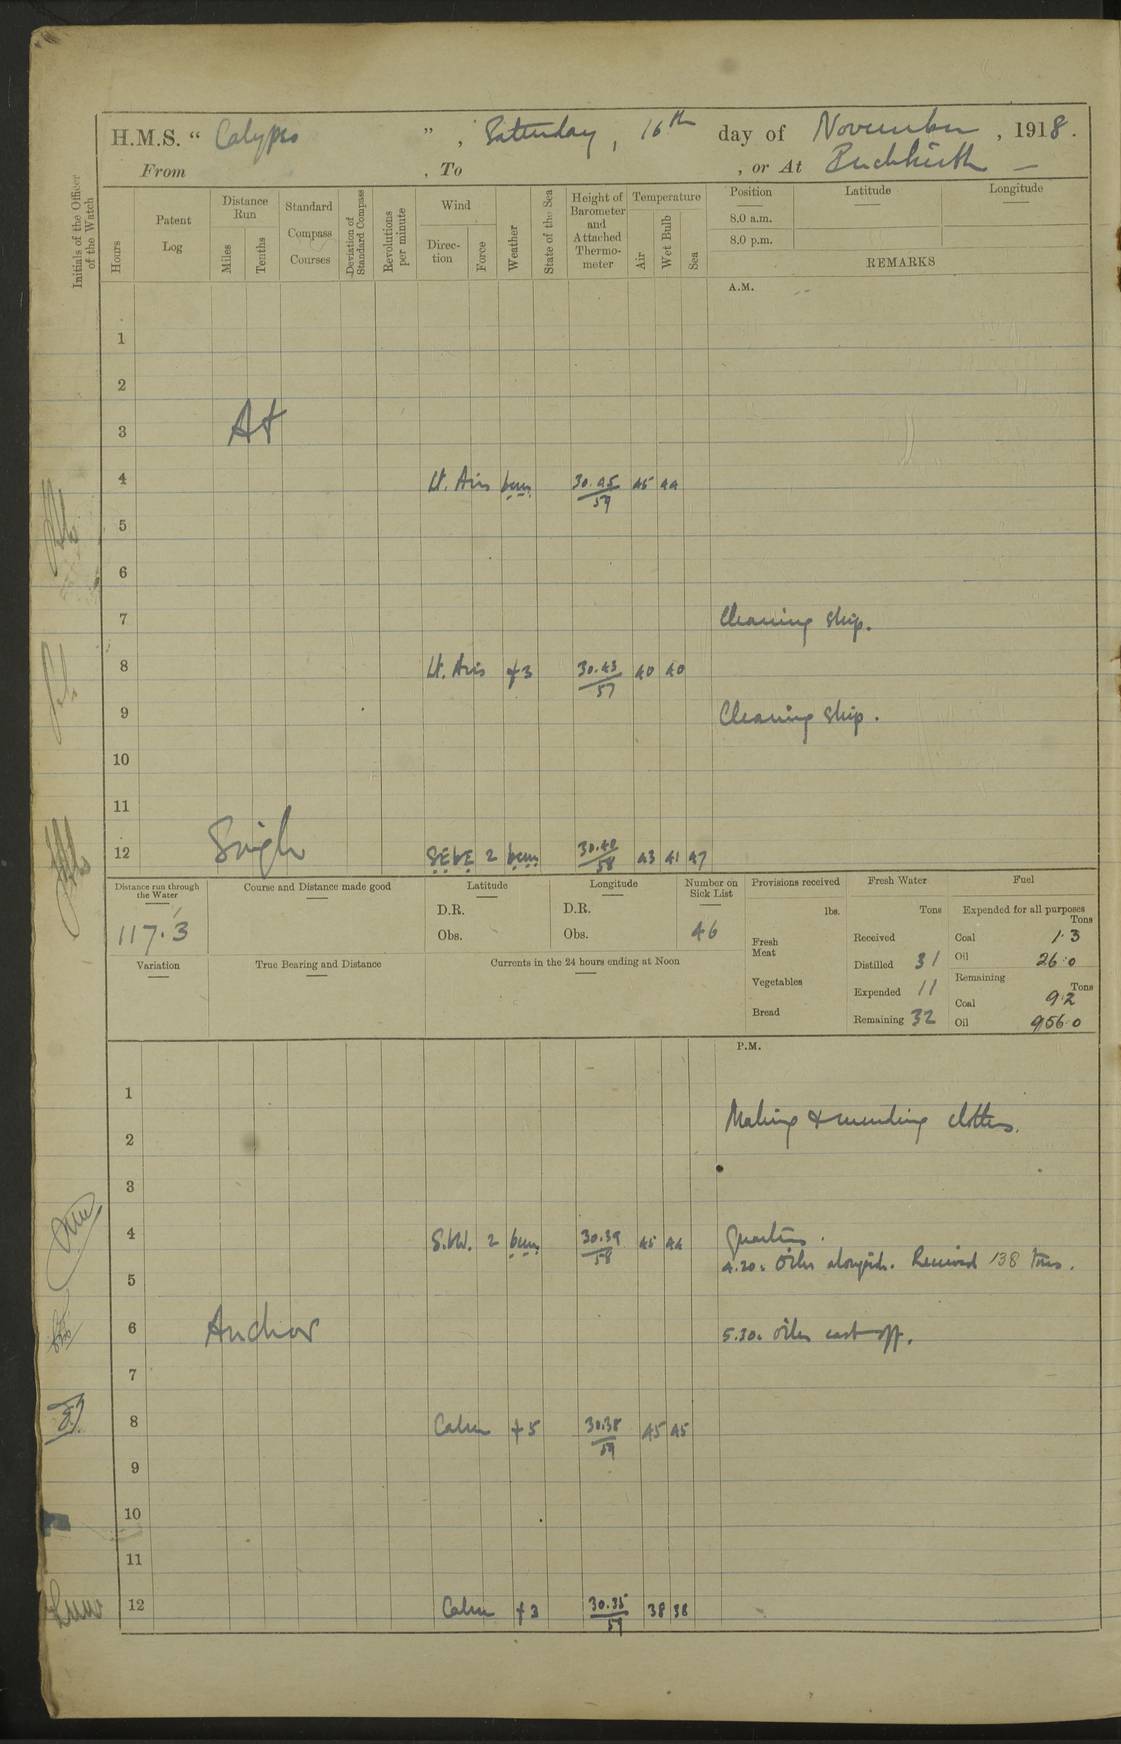 H.M.S. “ Calypso ” , Saturday, 16th day of November , 1918 .
From , To , or At Buckhurst —
Initials of the Officer of the Watch
Hours
Patent Log
Distance Run
Miles
Tenths
Standard Compass Courses
Deviation of Standard Compass
Revolutions per minute
Wind
Direc-tion
Force
Weather
State of the Sea
Height of Barometer and Attached Thermo-meter
Temperature
Air
Wet Bulb
Sea
Position
8.0 a.m.
8.0 p.m.
Latitude
Longitude
REMARKS
A.M.
1
2
3 At
4 Lt. Airs bcm 30.45/59 45 44
5
6
7 Cleaning ship.
8 Lt. Airs f3 30.43/57 40 40
9 Cleaning ship.
10
11
12 Single SEbE 2 bcm 30.40/58 43 41 47
Distance run through the Water
117.3
Course and Distance made good
Latitude
D.R.
Obs.
Longitude
D.R.
Obs.
Number on Sick List
46
Variation
True Bearing and Distance
Currents in the 24 hours ending at Noon
Provisions received
lbs.
Fresh Meat
Vegetables
Bread
Fresh Water
Tons
Received
Distilled 31
Expended 11
Remaining 32
Fuel
Expended for all purposes
Tons
Coal 1.3
Oil 26.0
Remaining
Tons
Coal 92
Oil 956.0
P.M.
1
Making & mending clothes.
2
3
4 S.bW. 2 bcm 30.39/58 45 44 Quarters.
4.20. Oiler alongside. Received 138 tons.
5
6 Anchor 5.30. Oiler cast off.
7
8 Calm f5 30.38/59 45 45
9
10
11
12 Calm f3 30.35/59 38 38